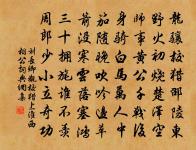 龍驤校猎邵陵東
野火初燒楚澤空
師事黃公千戰後
身騎白馬萬人中
笳隨晚吹吟邊草
箭沒寒雲落塞鴻
三十擁旄誰不羨
周郎少小立奇功
劉長卿觀校猎上淮西
相公詞典網集